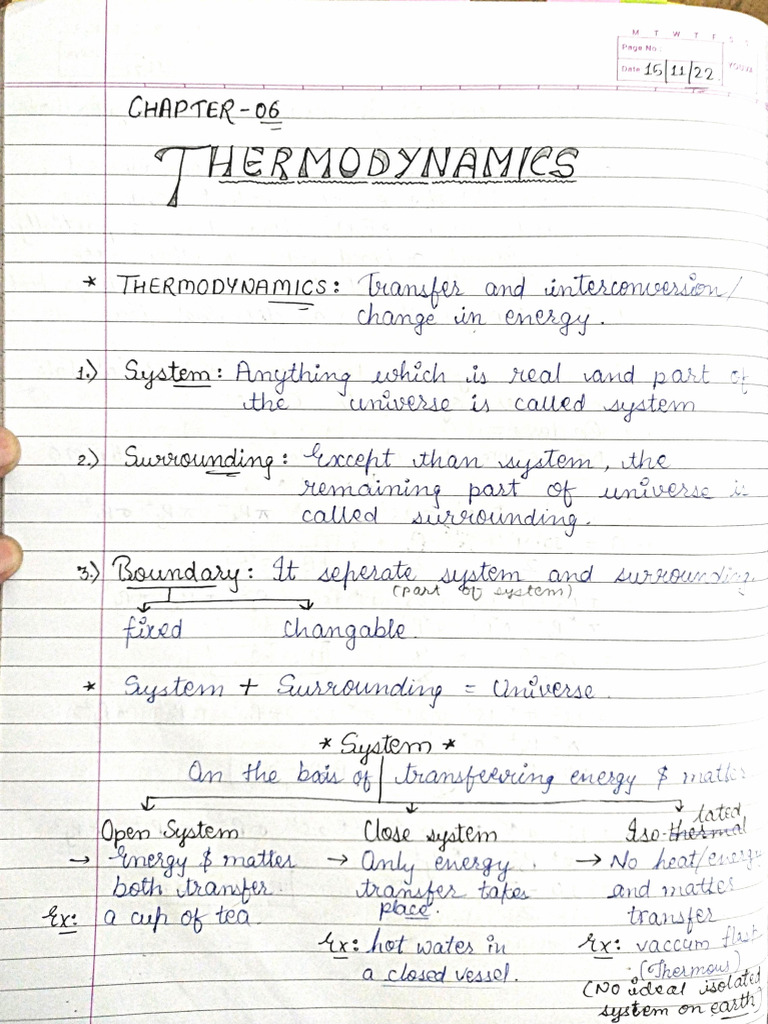 M T W T F S S
Page No.:
Date: 15/11/22
YOUVA
CHAPTER-06
THERMODYNAMICS
* THERMODYNAMICS: Transfer and interconversion/
change in energy.
1.) System: Anything which is real and part of
the universe is called system
2.) Surrounding: Except than system, the
remaining part of universe is
called surrounding.
3.) Boundary: It seperate system and surrounding.
(part of system)
fixed changable.
* System + Surrounding = Universe.
* System *
On the bais of transfeering energy & matter
Open System Close system Iso-thermal lated
→ Energy & matter → Only energy → No heat/energy
both transfer. transfer takes and matter
Ex: a cup of tea. place. transfer
Ex: hot water in Ex: vaccum flask
a closed vessel. (Thermous)
(No ideal isolated
system on earth)